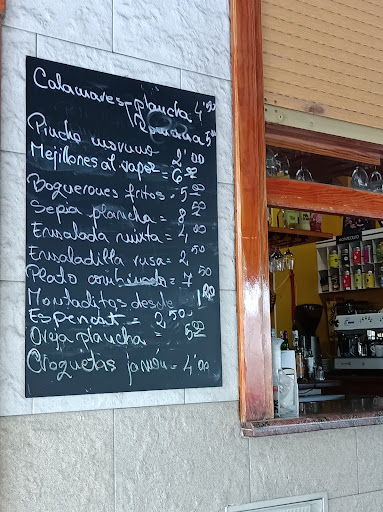 Calamares plancha 4'50
Romana 5'50
Pincho moruno 2'00
Mejillones al vapor = 6'50
Boquerones fritos = 5'50
Sepia plancha = 8'50
Ensalada mixta = 4'00
Ensaladilla rusa = 2'50
Plato combinado = 7'50
Montaditos desde 1'20
Espencat = 2'50
Oreja plancha = 5'50
Croquetas jamón = 4'00